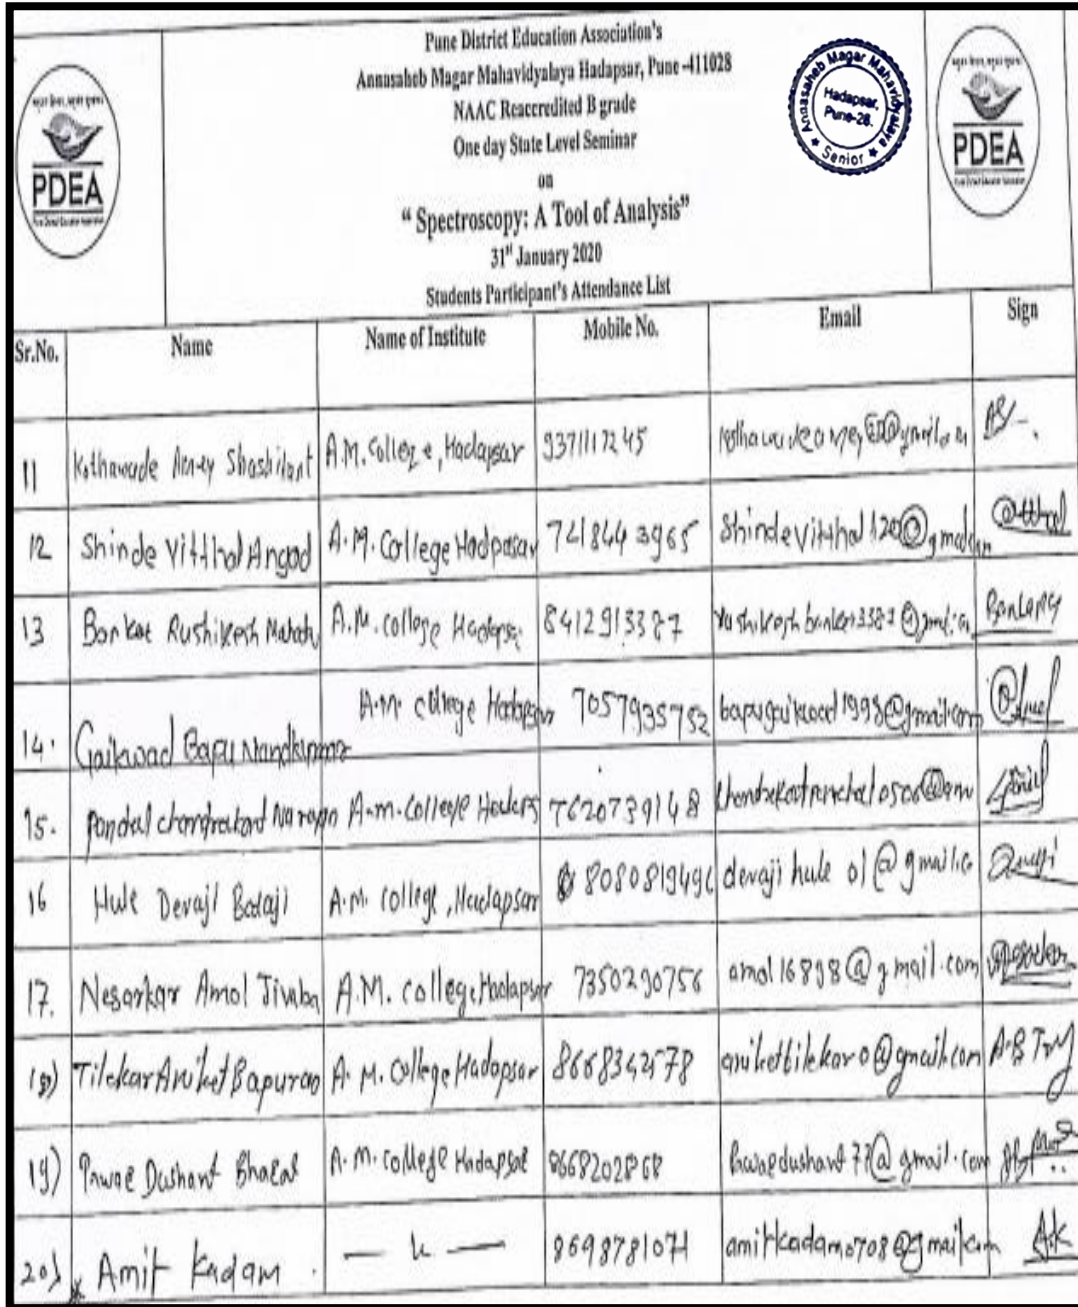 Pune District Education Association's
Annasaheb Magar Mahavidyalaya Hadapsar, Pune-411028
NAAC Reaccredited B grade
One day State Level Seminar
on
“ Spectroscopy: A Tool of Analysis”
31st January 2020
Students Participant's Attendance List
PDEA
Annasaheb Magar Mahavidyalaya
Hadapsar,
Pune-28.
★ Senior ★
PDEA
Sr.No. Name Name of Institute Mobile No. Email Sign
11 Kothawade Amey Shashikant A.M. College, Hadapsar 9371117245
12 Shinde Vitthal Angad A.M. College Hadpasar 7218443965
13 Bankar Rushikesh Mahadu A.M. college Hadapsar 8412913387
14. Gaikwad Bapu Nandkumar A.M. college Hadapsar 7057935752 bapugaikwad1998@gmail.com
15. chandrakant Narayan A.m. College 7620739148
16 Hule Devaji Balaji A.M. college, Hadapsar 8080819496 devajihule01@gmail.co
17. Nesarkar Amol Jivaba A.M. college Hadapsar 7350290756 amol16898@gmail.com
18) Tilekar Aniket Bapurao A. M. College Hadapsar anikettilekar0@gmail.com
19) Pawar Dushant Bharat A.M. college Hadapsar 8668202868 pawardushant77@gmail.com
20) Amit Kadam. — 〃 — 8698781071 amitkadam0708@gmail.com AK